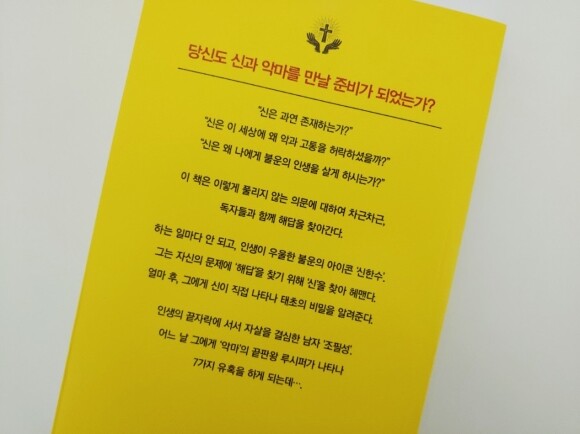 당신도 신과 악마를 만날 준비가 되었는가?
"신은 과연 존재하는가?"
"신은 이 세상에 왜 악과 고통을 허락하셨을까?"
"신은 왜 나에게 불운의 인생을 살게 하시는가?"
이 책은 이렇게 풀리지 않는 의문에 대하여 차근차근,
독자들과 함께 해답을 찾아간다.
하는 일마다 안 되고, 인생이 우울한 불운의 아이콘 '신한수'.
그는 자신의 문제에 '해답'을 찾기 위해 '신'을 찾아 헤맨다.
얼마 후, 그에게 신이 직접 나타나 태초의 비밀을 알려준다.
인생의 끝자락에 서서 자살을 결심한 남자 '조필성'.
어느 날 그에게 '악마'의 끝판왕 루시퍼가 나타나
7가지 유혹을 하게 되는데….